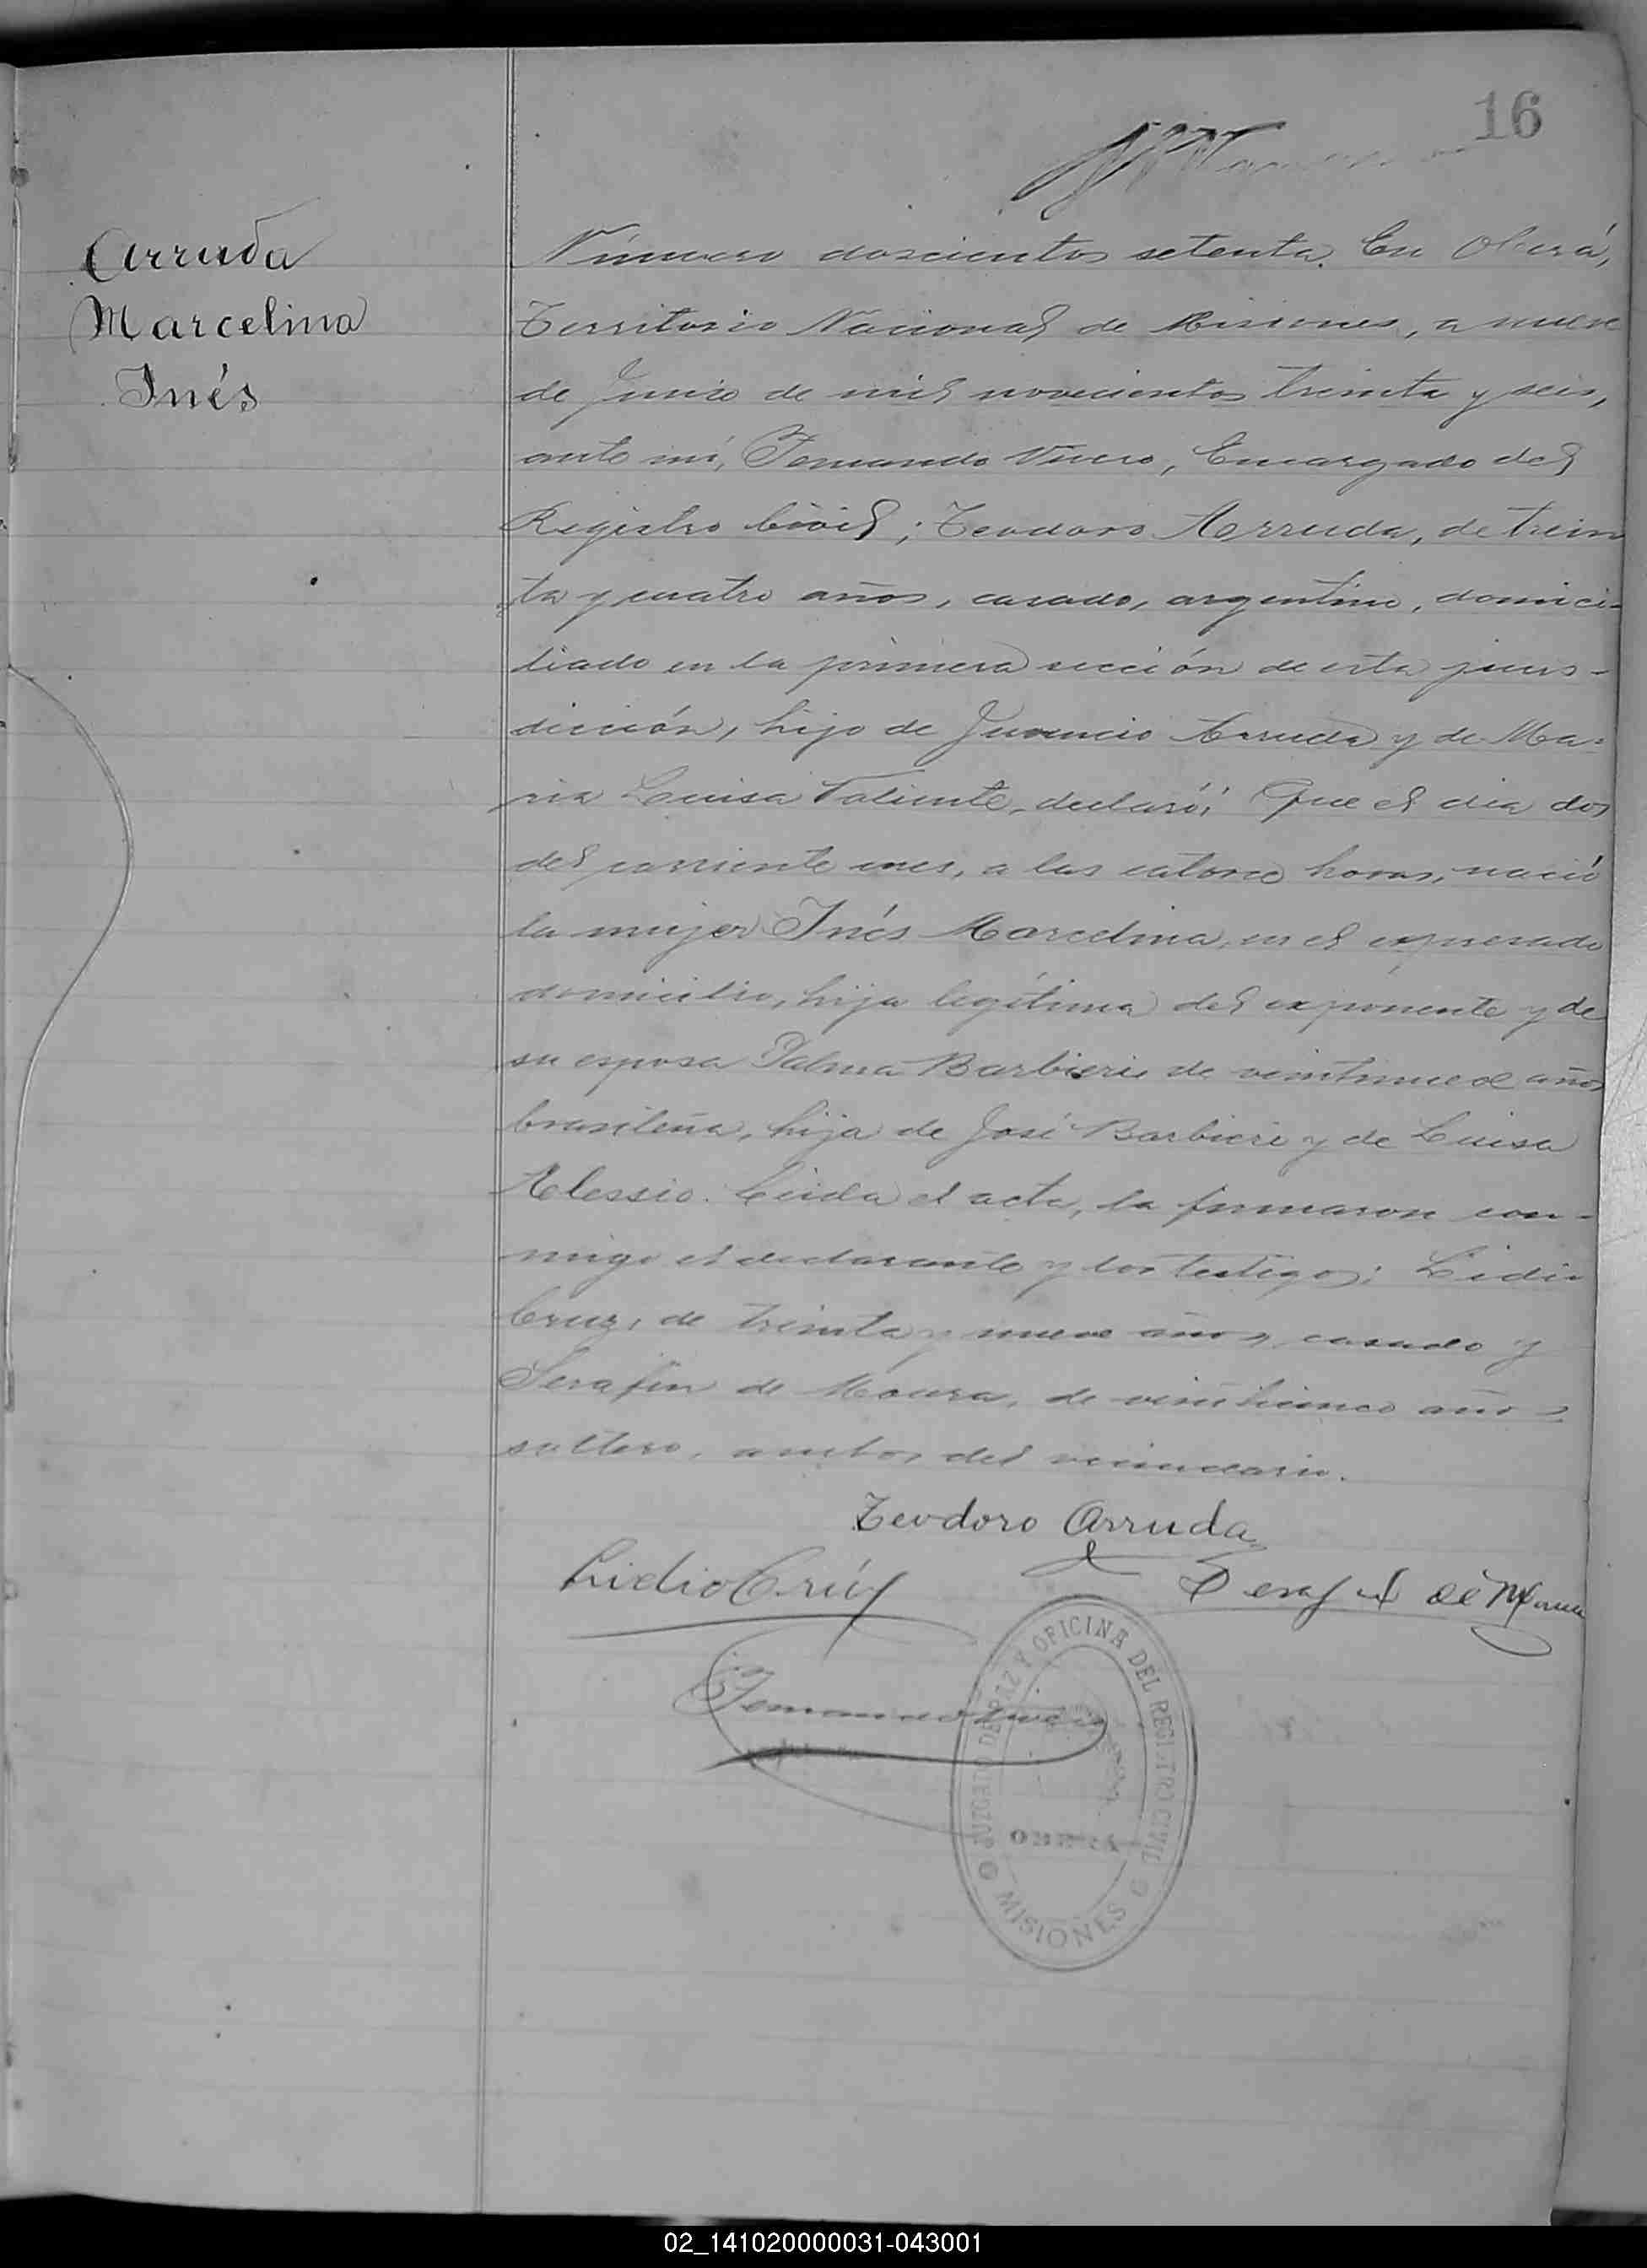 16
Arruda
Marcelina
Inés
Número doscientos setenta. En Oberá,
Territorio Nacional de Misiones, a nueve
de Junio de mil novecientos treinta y seis,
ante mí, Fernando Vivero, Encargado del
Registro Civil; Teodoro Arruda, de trein
ta y cuatro años, casado, argentino, domici-
liado en la primera sección de esta juris-
dicción, hijo de Juvencio Arruda y de Ma-
ria Luisa Valiente, declaró: Que el dia dos
del corriente mes, a las catorce horas, nació
la mujer Inés Marcelina, en el expresado
domicilio, hija legítima del exponente y de
su esposa Palma Barbieri de veintinueve años
brasileña, hija de José Barbieri y de Luisa
Alessio. Leida el acta, la firmaron con-
migo el declarante y los testigos: Lidio
Cruz, de treinta y nueve años, casado y
Serafin de Moura, de veinticinco años
soltero, ambos del vecindario.
Teodoro Arruda
Lidio Crúz
de Moura
Fernando
JUZGADO DE PAZ Y OFICINA DEL REGISTRO CIVIL
OBERA
MISIONES
02_141020000031-043001